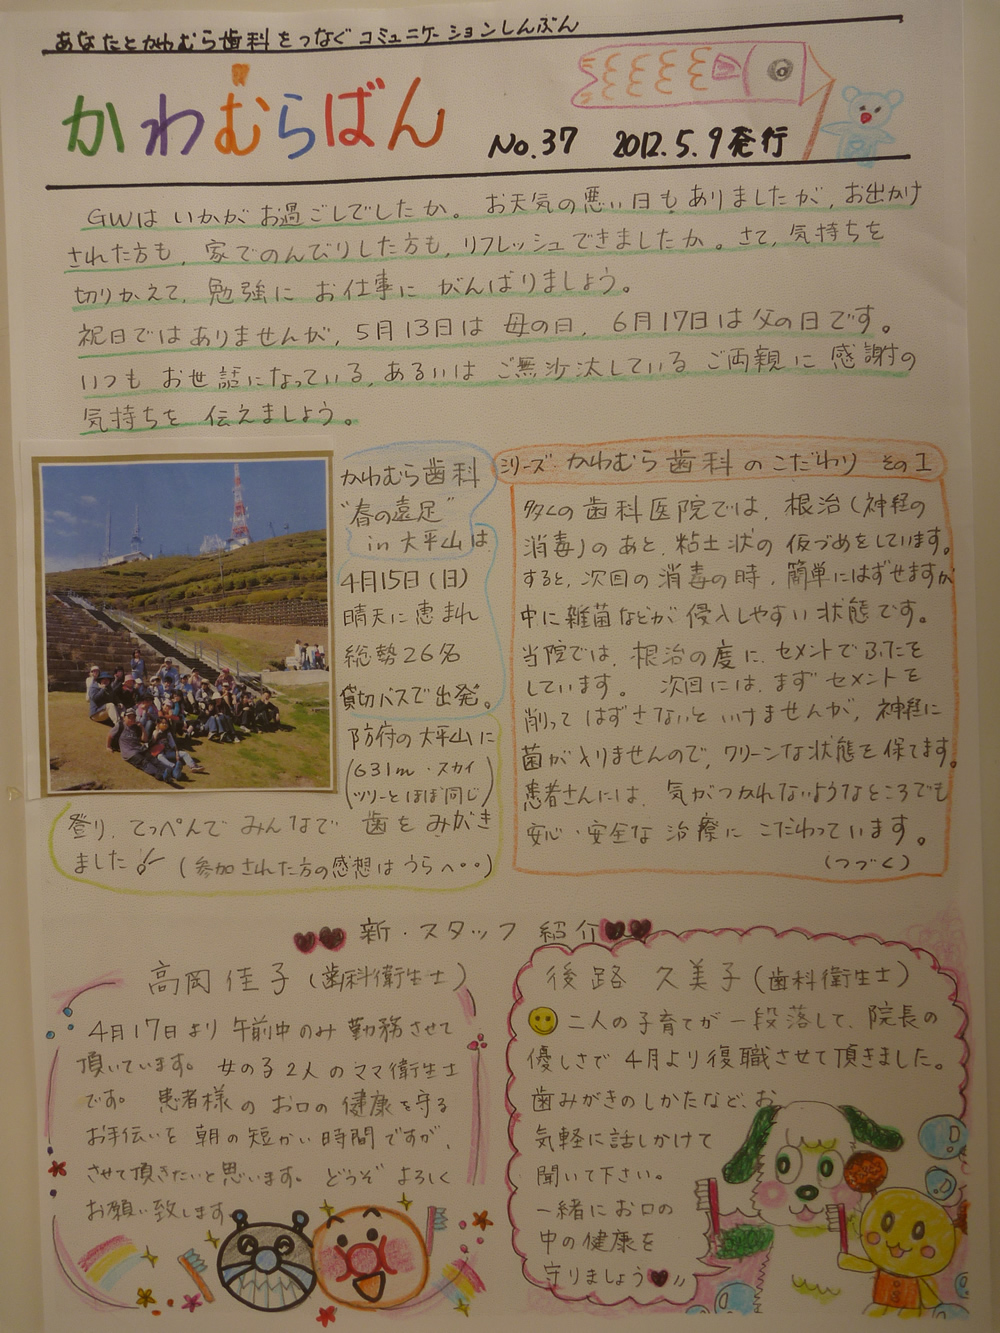 あなたとかわむら歯科をつなぐコミュニケーションしんぶん
かわむらばん
No.37 2012.5.9発行
GWは いかが お過ごしでしたか。 お天気の悪い日もありましたが、お出かけ
された方も、家でのんびりした方も、リフレッシュできましたか。さて、気持ちを
切りかえて、勉強に お仕事に がんばりましょう。
祝日ではありませんが、5月13日は 母の日、6月17日は父の日です。
いつも お世話になっている、あるいは ご無沙汰している ご両親に 感謝の
気持ちを 伝えましょう。
かわむら歯科
"春の遠足"
in 大平山は、
4月15日(日)
晴天に恵まれ
総勢26名
貸切バスで出発。
防府の大平山に
(631m・スカイ
ツリーとほぼ同じ)
登り、てっぺんで みんなで 歯を みがき
ました!(参加された方の感想は うらへ・・)
シリーズ かわむら歯科のこだわり その1
多くの歯科医院では、根治(神経の
消毒)のあと、粘土状の仮づめをしています。
すると、次回の消毒の時、簡単にはずせますが
中に雑菌などが侵入しやすい状態です。
当院では、根治の度に、セメントでふたを
しています。 次回には、まず セメントを
削って はずさないと いけませんが、神経に
菌が入りませんので、クリーンな状態を保てます。
患者さんには、気がつかれないようなところでも
安心・安全な 治療に こだわっています。
(つづく)
新・スタッフ 紹介
高岡 佳子(歯科衛生士)
4月17日より 午前中のみ 勤務させて
頂いています。 女の子2人のママ衛生士
です。 患者様の お口の 健康を守る
お手伝いを 朝の短かい時間ですが、
させて頂きたいと思います。どうぞ よろしく
お願い致します
後路 久美子(歯科衛生士)
二人の子育てが一段落して、院長の
優しさで 4月より復職させて頂きました。
歯みがきのしかたなど、お
気軽に話しかけて
聞いて下さい。
一緒に お口の
中の健康を
守りましょう